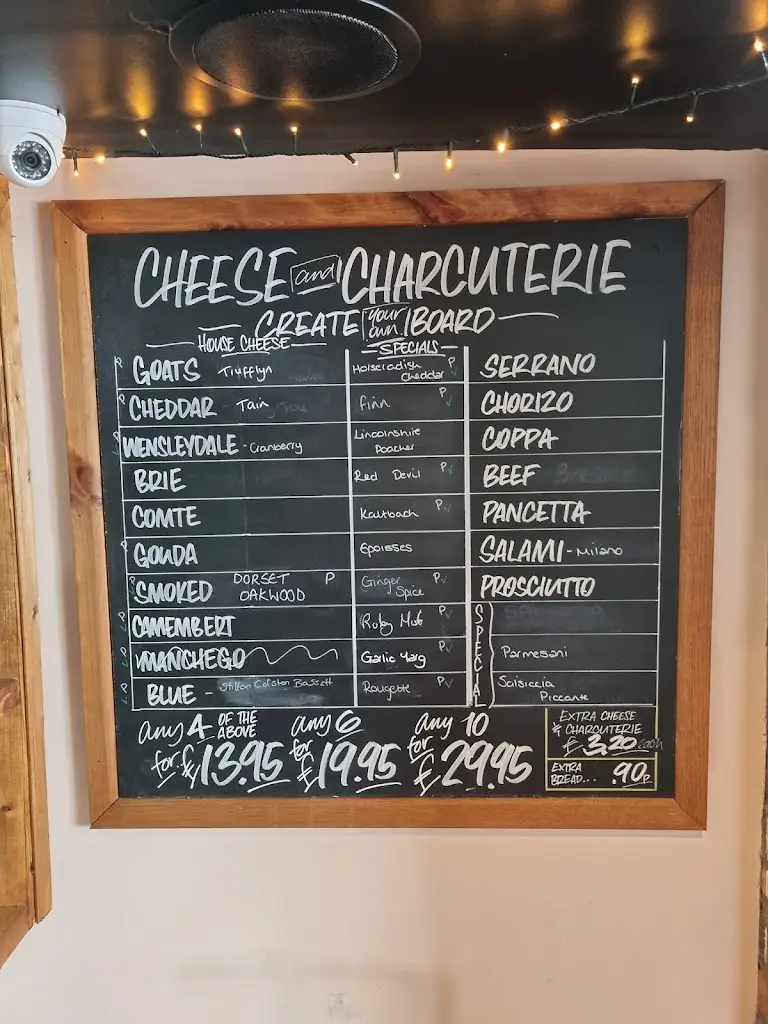 CHEESE and CHARCUTERIE
CREATE your own BOARD
HOUSE CHEESE
GOATS Trufflyn
CHEDDAR - Tain
WENSLEYDALE - Cranberry
BRIE
COMTE
GOUDA
SMOKED DORSET OAKWOOD P
CAMEMBERT
MANCHEGO
BLUE - Stilton Colston Bassett
SPECIALS
Horseradish Cheddar P
Finn P V
Lincolnshire Poacher
Red Devil P V
Kaltbach P V
Epoisses
Ginger Spice P V
Ruby Mist P V
Garlic Yarg P V
Rougette P V
SERRANO
CHORIZO
COPPA
BEEF
PANCETTA
SALAMI - Milano
PROSCIUTTO
SPECIAL
Parmesani
Salsiccia
Piccante
any 4 OF THE ABOVE for £13.95
any 6 for £19.95
any 10 for £29.95
EXTRA CHEESE
& CHARCUTERIE
£3.20 each
EXTRA BREAD... .90p